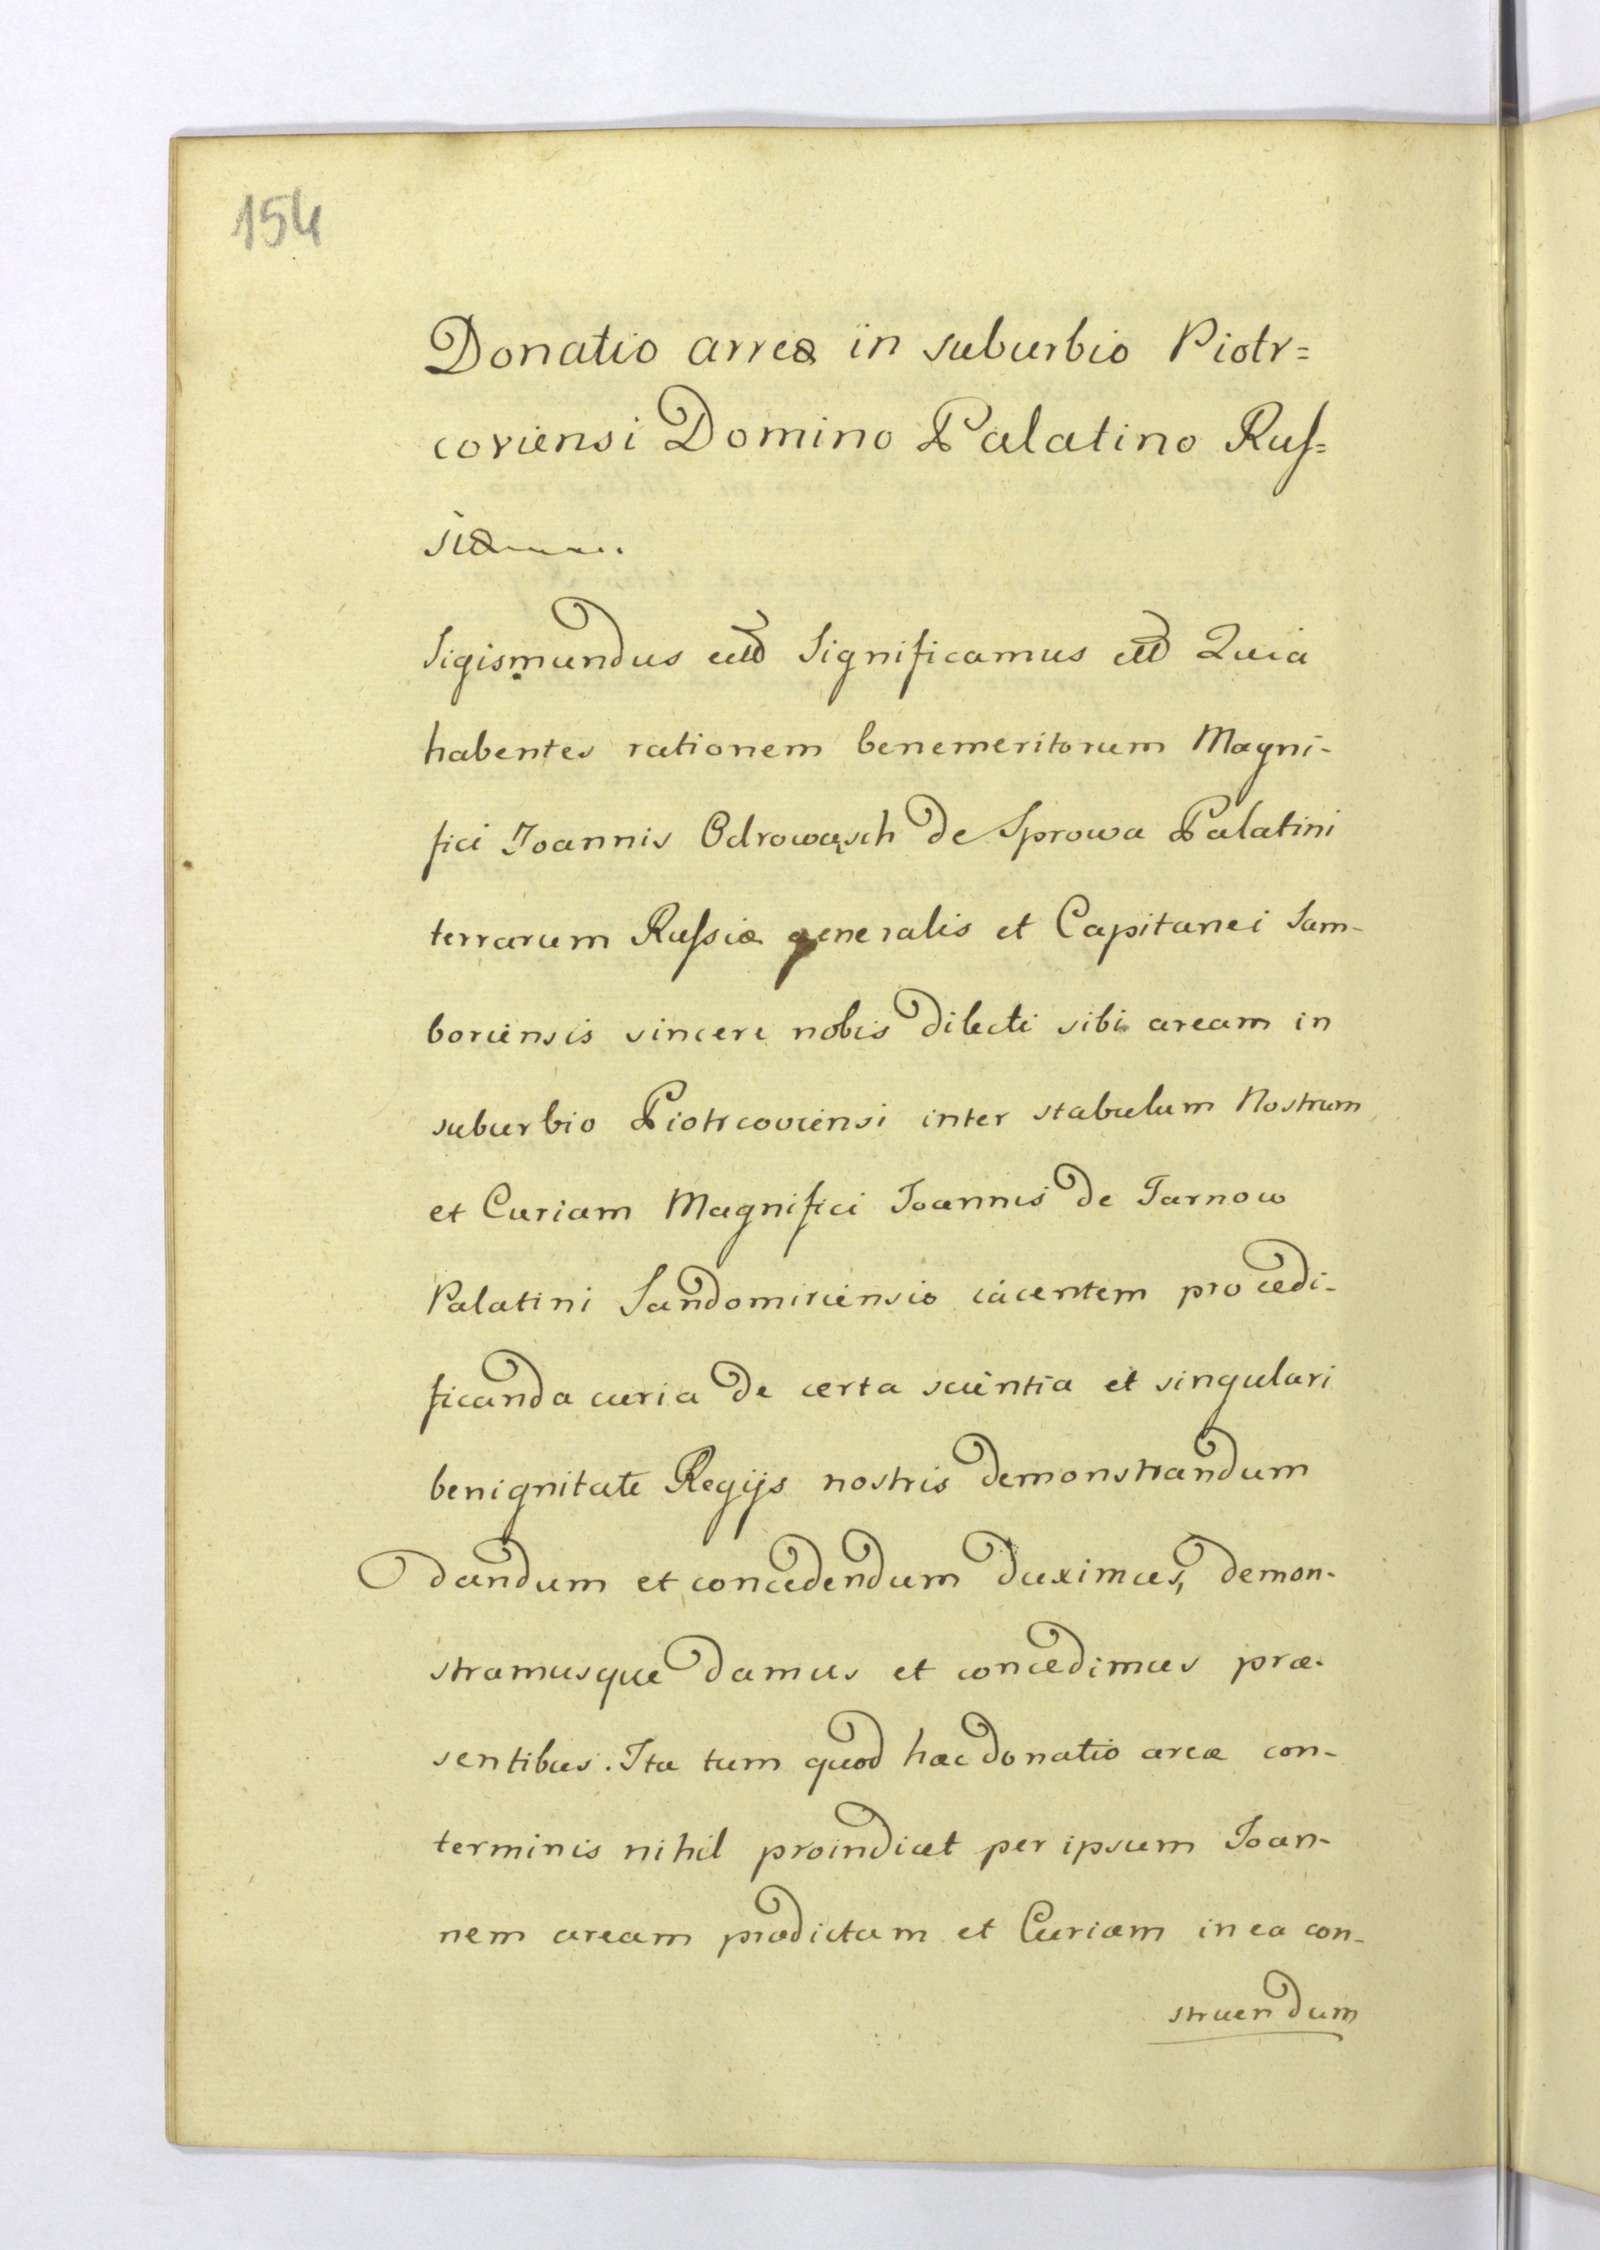 154
Donatio arreæ in suburbio Piotr=
coviensi Domino Palatino Rus=
siæ
Sigismundus Significamus Quia
habentes rationem benemeritorum Magni-
fici Joannis Odrowąsch de Sprowa Palatini
terrarum Russiæ generalis et Capitanei Sam-
boriensis sincere nobis dilecti sibi aream in
suburbio Piotrcoviensi inter stabulum Nostrum
et Curiam Magnifici Joannis de Tarnow
Palatini Sandomiriensis iacentem pro ædi-
ficanda curia de certa scientia et singulari
benignitate Regijs nostris demonstrandum
dandum et concedendum duximus, demon-
stramusque damus et concedimus præ-
sentibus. Ita tum quod hæc donatio areæ con-
terminis nihil proindicet per ipsum Joan-
nem aream prædictam et Curiam in ea con-
struendum